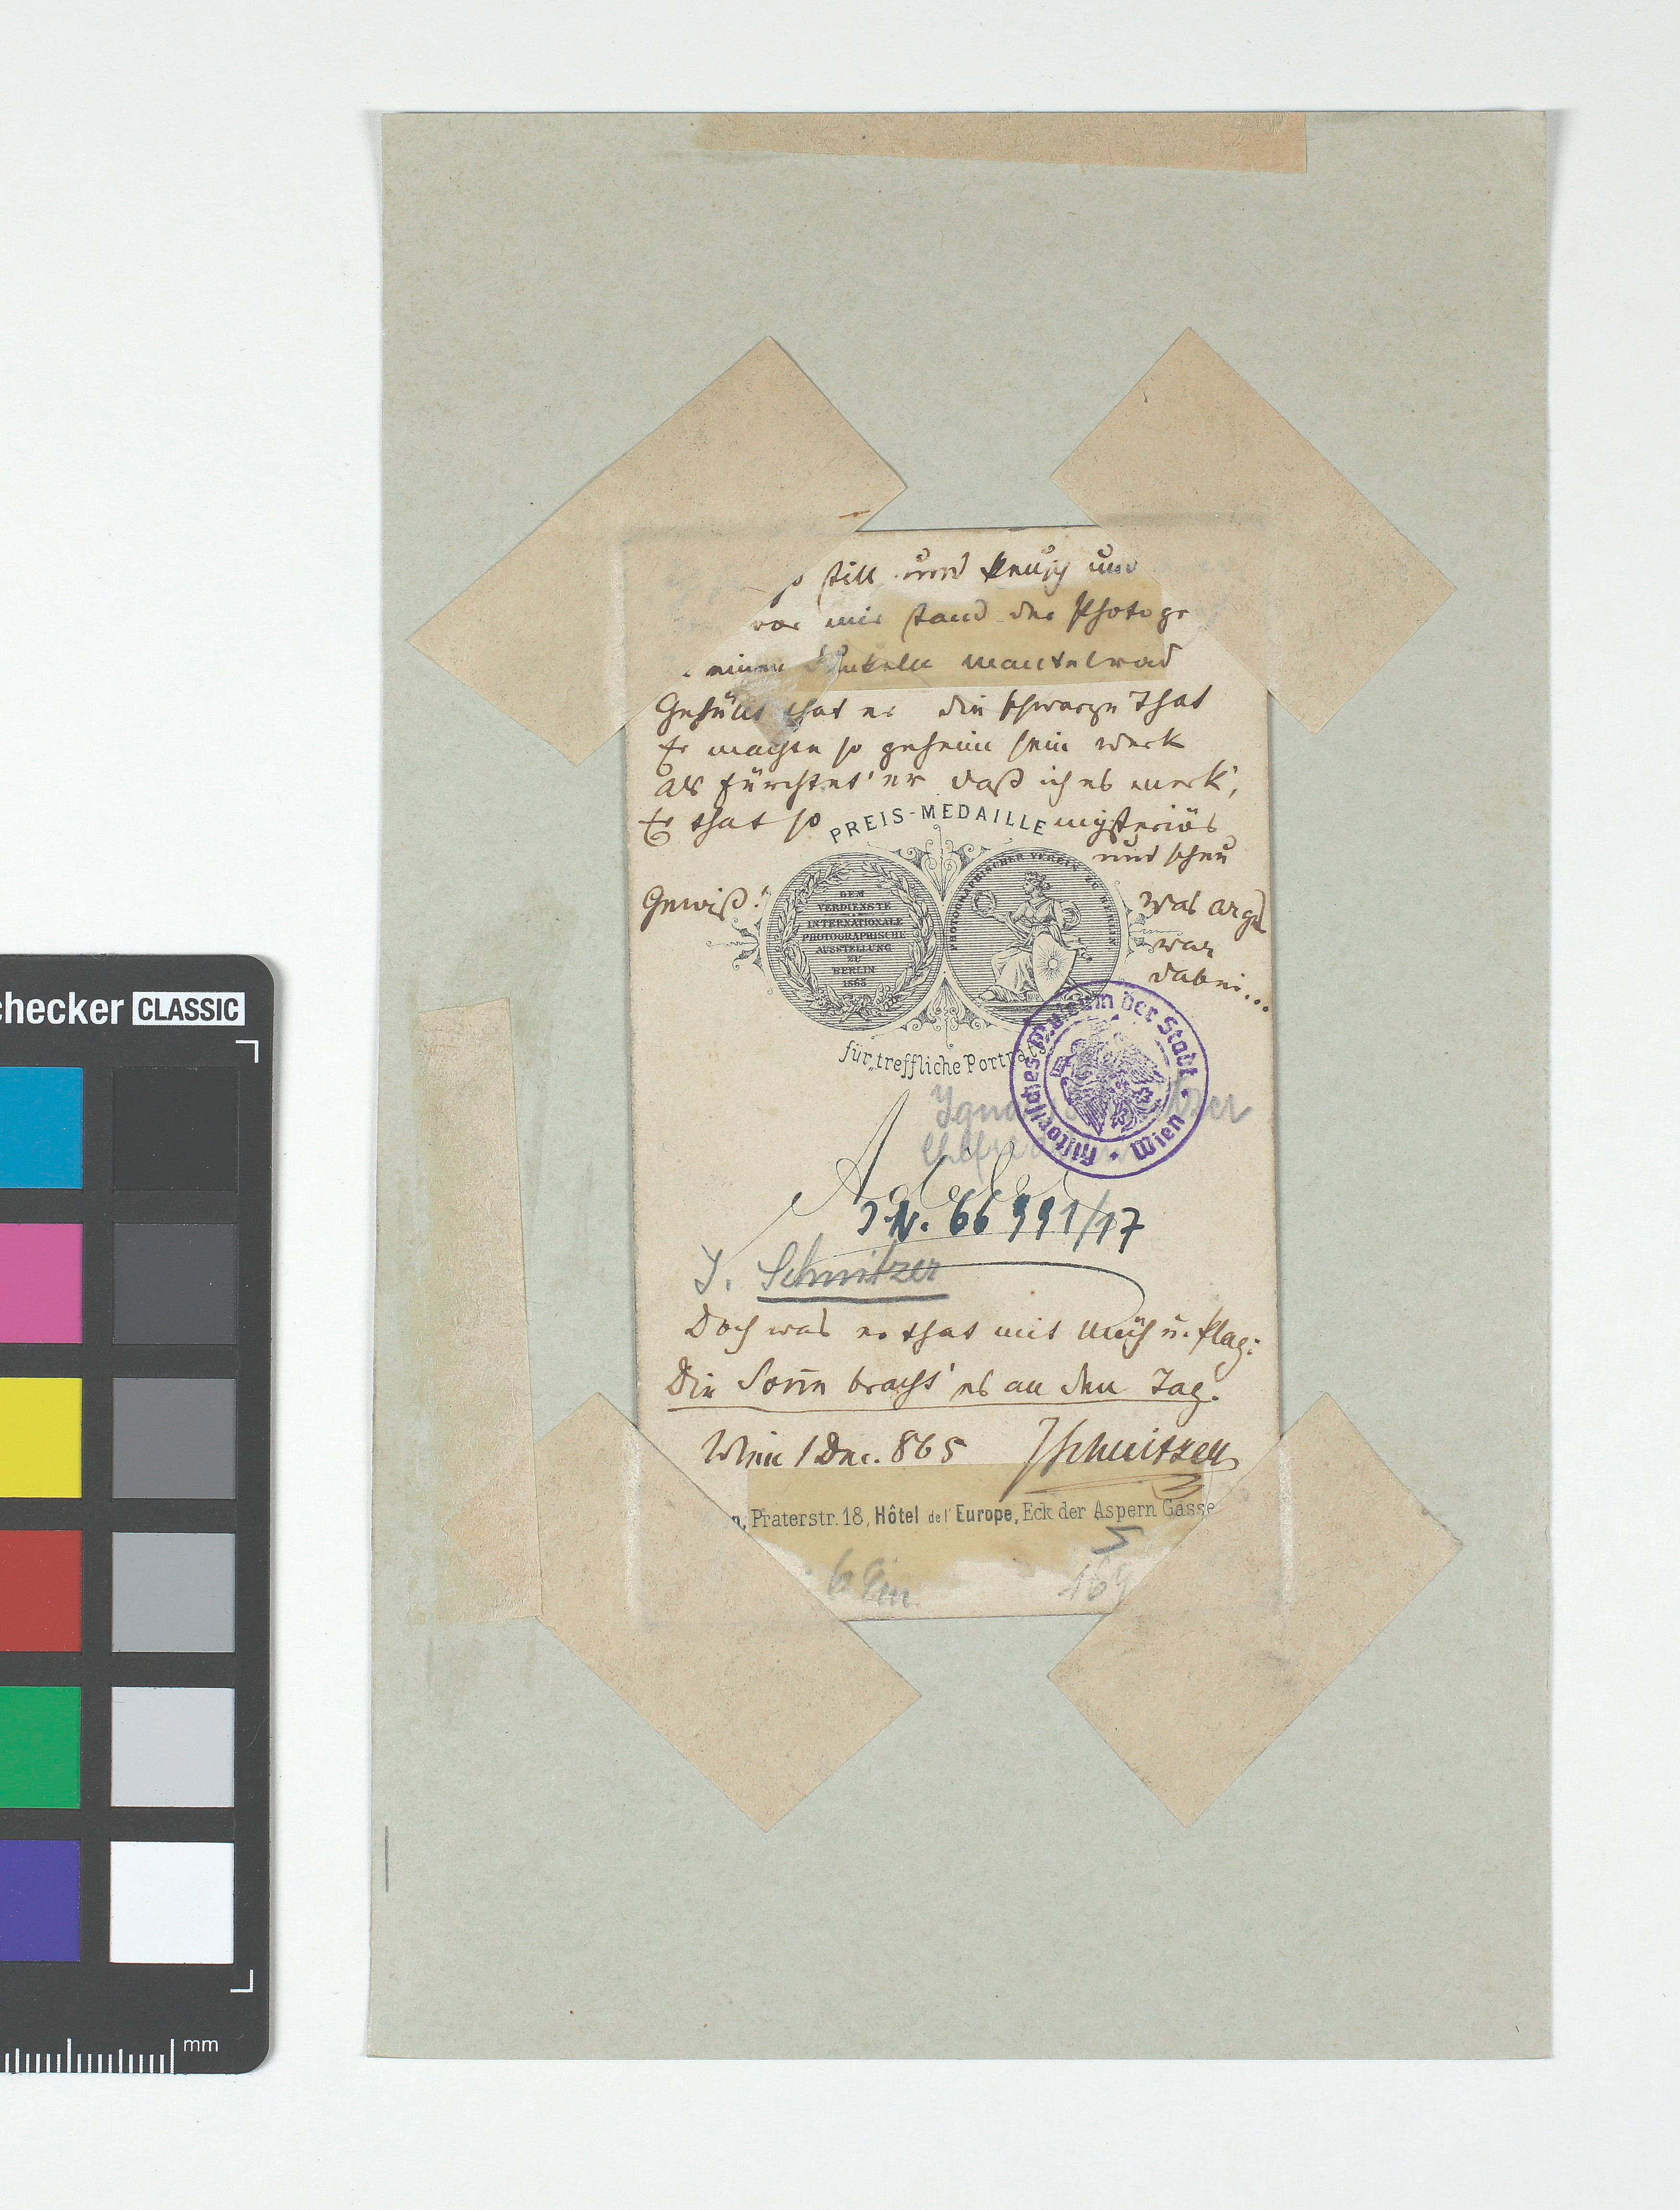 still und keusch und
vor mir stand der Photogr
einen dunkeln Mantelrad
Gehüllt that er die schwarze That
Er machte so geheim sein Werk
Als fürchtet' er daß ich es merk',
Er that so mysteriös
und scheu
PREIS-MEDAILLE
Gewiß!
Was arges
war
dabei...
DEM
VERDIENSTE
INTERNATIONALE
PHOTOGRAPHISCHE
AUSSTELLUNG
ZU
BERLIN
1865
PHOTOGRAPHISCHER VEREIN ZU BERLIN
für „treffliche Portraits
Historisches Museum der Stadt Wien
J.N. 66991/17
I. Schnitzer
Doch was er that mit Müh u. Plag:
Die Sonn bracht' es an den Tag.
Wien 1 Dec. 865 JSchnitzer
Praterstr. 18, Hôtel de l' Europe, Eck der Aspern Gasse
169
checker CLASSIC
mm